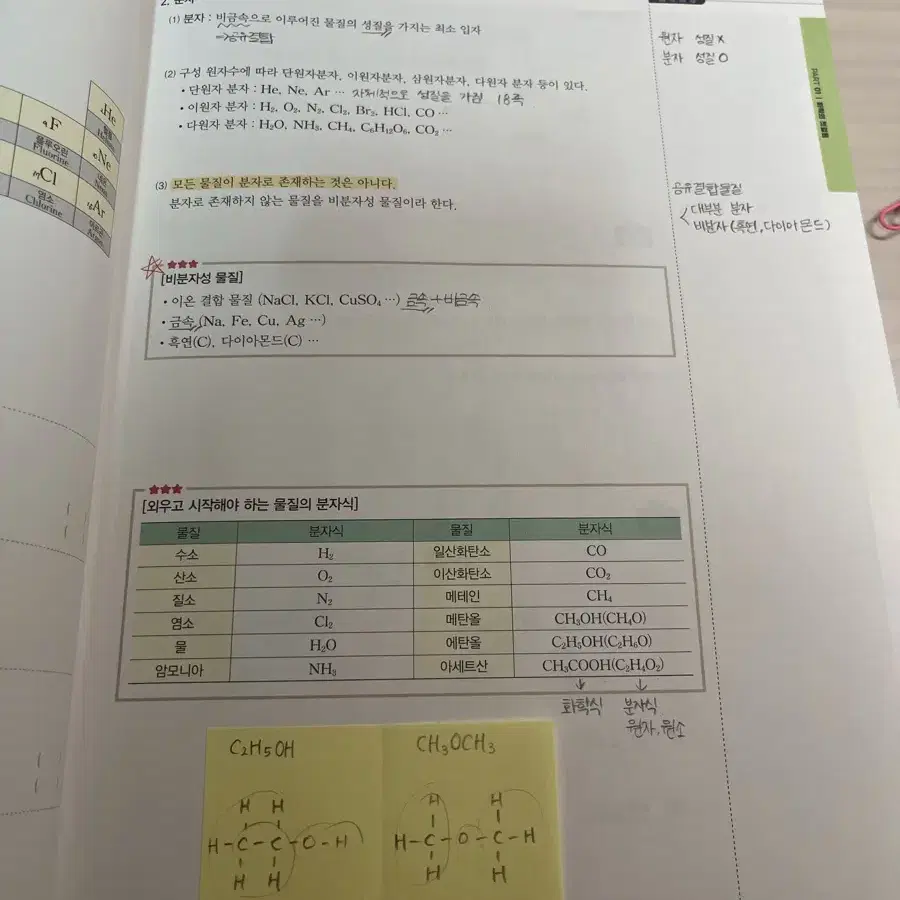 2. 분자
(1) 분자 : 비금속으로 이루어진 물질의 성질을 가지는 최소 입자
⇒공유결합
원자 성질 X
분자 성질 O
(2) 구성 원자수에 따라 단원자분자, 이원자분자, 삼원자분자, 다원자 분자 등이 있다.
• 단원자 분자 : He, Ne, Ar … 자체적으로 성질을 가짐 18족
• 이원자 분자 : H₂, O₂, N₂, Cl₂, Br₂, HCl, CO …
• 다원자 분자 : H₂O, NH₃, CH₄, C₆H₁₂O₆, CO₂ …
(3) 모든 물질이 분자로 존재하는 것은 아니다.
분자로 존재하지 않는 물질을 비분자성 물질이라 한다.
공유결합물질
대부분 분자
비분자 (흑연, 다이아몬드)
PART 01
₉F
플루오린
Fluorine
₁₇Cl
염소
Chlorine
₂He
₁₀Ne
₁₈Ar
★★★
[비분자성 물질]
• 이온 결합 물질 (NaCl, KCl, CuSO₄ …) 금속+비금속
• 금속 (Na, Fe, Cu, Ag …)
• 흑연(C), 다이아몬드(C) …
★★★
[외우고 시작해야 하는 물질의 분자식]
물질 분자식 물질 분자식
수소 H₂ 일산화탄소 CO
산소 O₂ 이산화탄소 CO₂
질소 N₂ 메테인 CH₄
염소 Cl₂ 메탄올 CH₃OH(CH₄O)
물 H₂O 에탄올 C₂H₅OH(C₂H₆O)
암모니아 NH₃ 아세트산 CH₃COOH(C₂H₄O₂)
↓ ↓
화학식 분자식
원자, 원소
C₂H₅OH CH₃OCH₃
H H H H
H-C-C-O-H H-C-O-C-H
H H H H